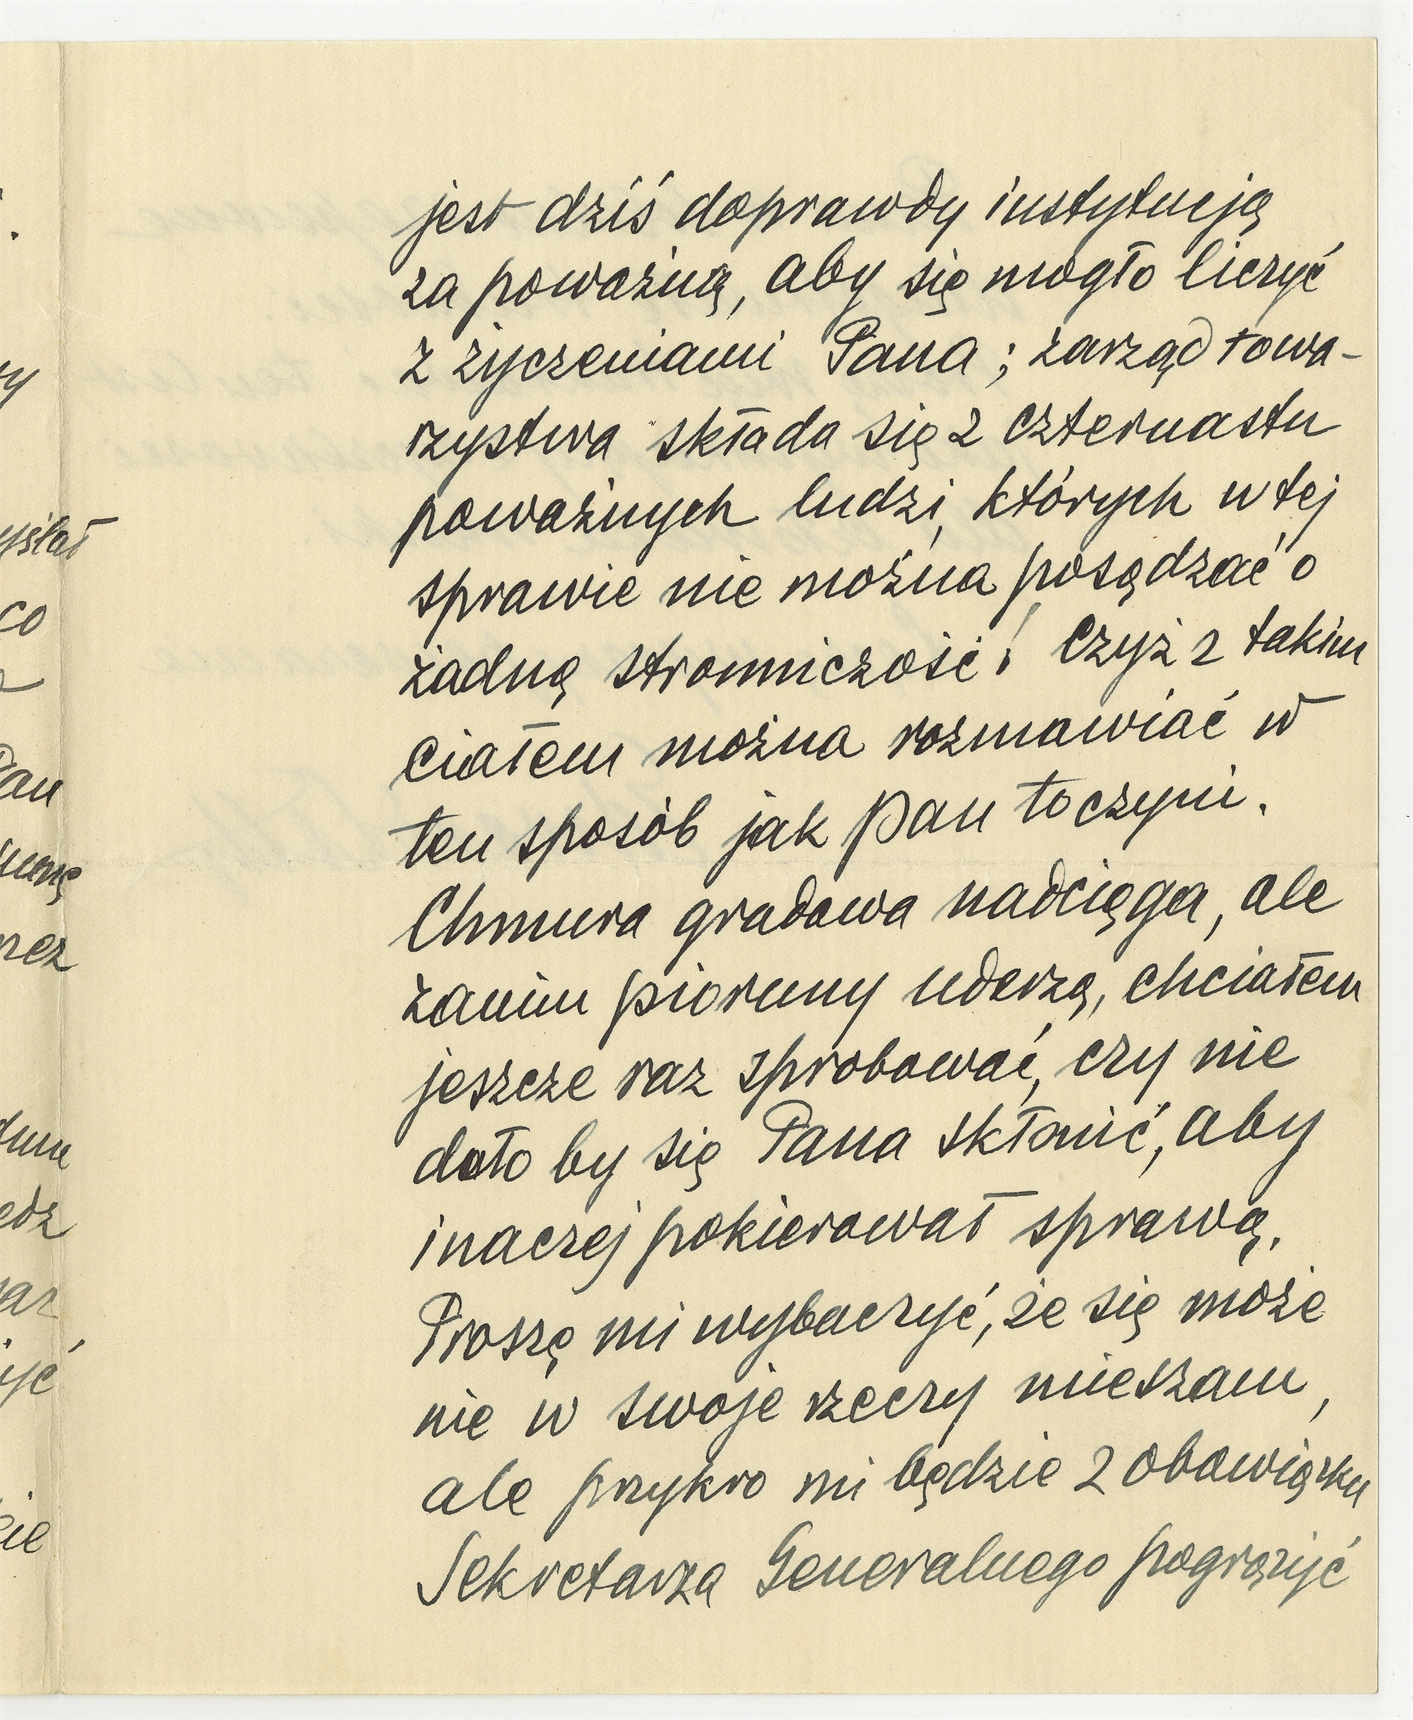 jest dziś doprawdy instytucją
za poważną, aby się mogło liczyć
z życzeniami Pana; zarząd towa-
rzystwa składa się z czternastu
poważnych ludzi, których w tej
sprawie nie można posądzać o
żadną stronniczość! Czyż z takim
ciałem można rozmawiać w
ten sposób jak Pan to czyni.
Chmura gradowa nadciąga, ale
zanim pioruny uderzą, chciałem
jeszcze raz sprobować, czy nie
dało by się Pana skłonić, aby
inaczej pokierował sprawą.
Proszę mi wybaczyć, że się może
nie w swoje rzeczy mieszam,
ale przykro mi będzie z obowiązku
Sekretarza Generalnego pogrążyć